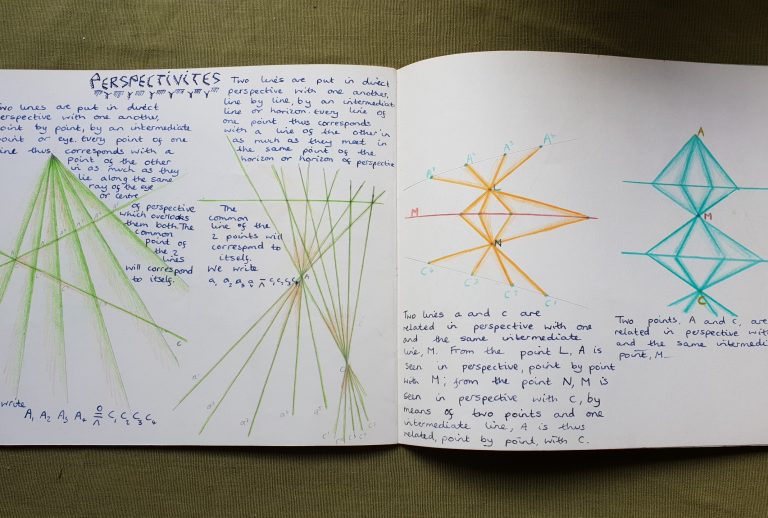 PERSPECTIVITES
wo lines are put in direct
erspective with one another,
oint by point, by an intermediate
oint or eye. Every point of one
ine thus corresponds with a
point of the other
in as much as they
lie along the same
ray of the eye
or centre
of perspective
which overlooks
them both. The
common
point of
the 2
lines
will correspond
to itself.
C
write
A₁ A₂ A₃ A₄ C₁ C₂ C₃ C₄
Two lines are put in direct
perspective with one another,
line by line, by an intermediat
line or horizon. Every line of
one point thus corresponds
with a line of the other in
as much as they meet in
the same point of the
horizon or horizon of perspective
The
common
line of the
2 points will
correspond to
itself.
We write
a₁ a₂ a₃ a₄ c₁ c₂ c₃ c₄
A
A¹ A² A³ A⁴
L
M
N
C⁴ C³ C² C¹
Two lines a and c are
related in perspective with one
and the same intermediate
line, M. From the point L, A is
seen in perspective, point by point
with M; from the point N, M is
seen in perspective with C, by
means of two points and one
intermediate line, A is thus
related, point by point, with C.
A
M
C
Two points, A and c, are
related in perspective with
and the same intermedi
point, M.